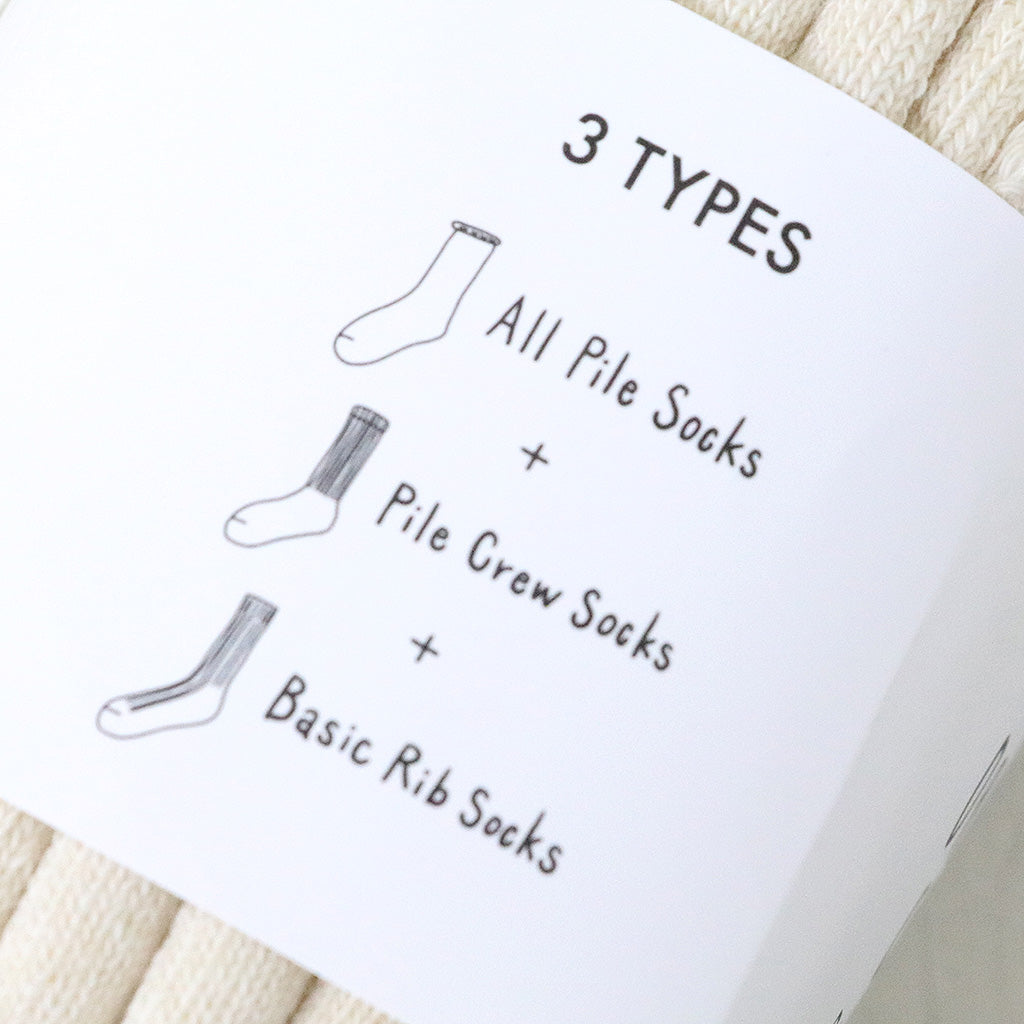 3 TYPES
All Pile Socks
+
Pile Crew Socks
+
Basic Rib Socks